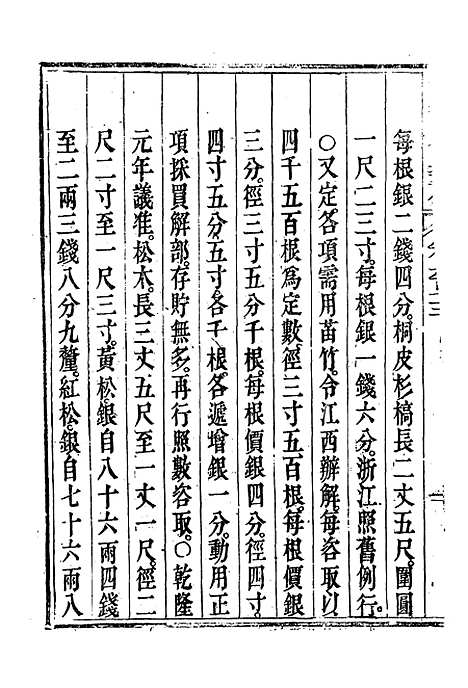 每根銀二錢四分。桐皮杉槁長二丈五尺。圍圓
一尺二三寸。每根銀一錢六分。浙江照舊例行。
○又定各項需用苗竹。令江西辦解。每咨取以
四千五百根爲定數。徑三寸五百根。每根價銀
三分。徑三寸五分千根。每根價銀四分。徑四寸。
四寸五分五寸。各千根。各遞增銀一分。動用正
項採買解部。存貯無多。再行照數咨取。○乾隆
元年議准。松木。長三丈五尺至一丈一尺。徑二
尺二寸至一尺三寸。黃松。銀自八十六兩四錢
至二兩三錢八分九釐。紅松。銀自七十六兩八